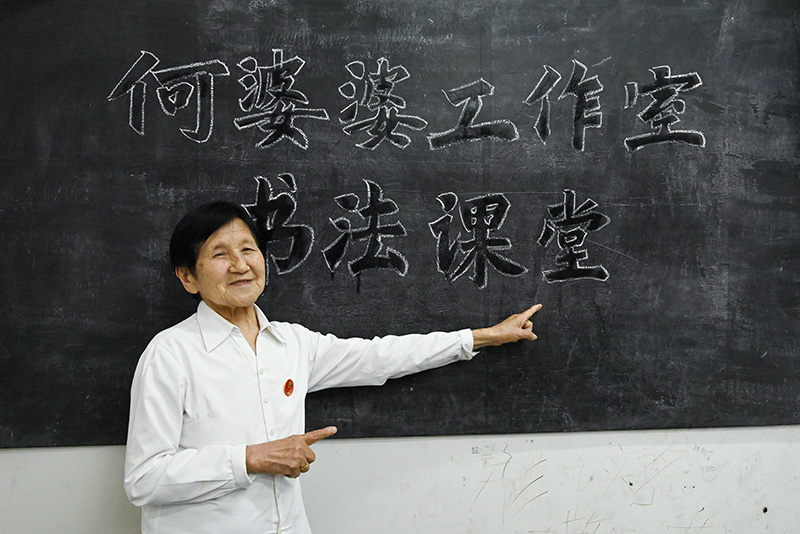 何婆婆工作室
书法课堂